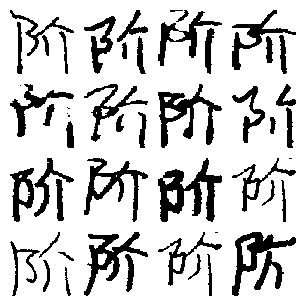 阶阶阶阶
阶阶阶阶
阶阶阶阶
阶阶阶阶